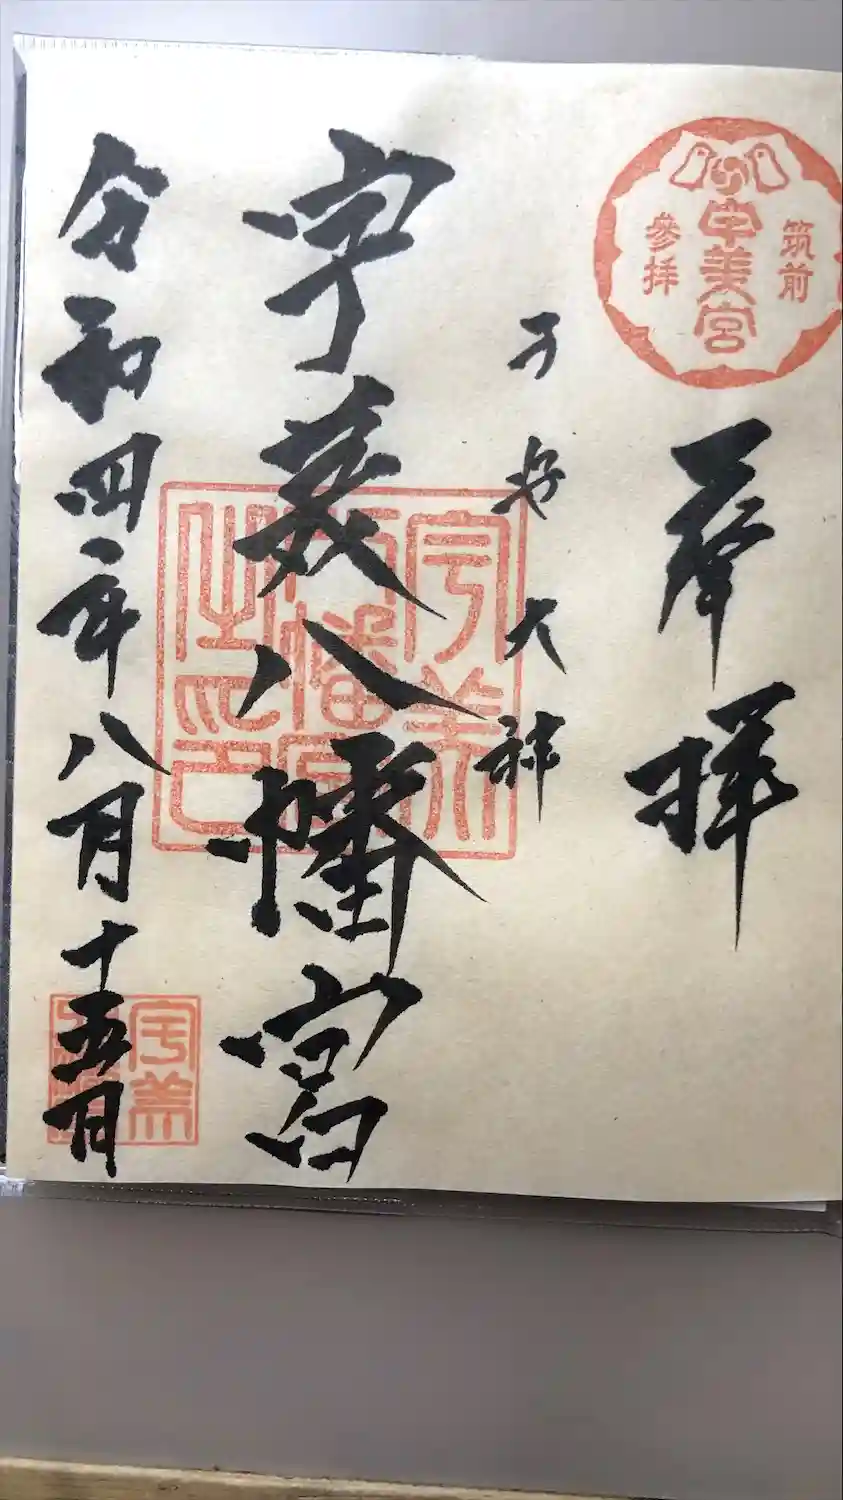 筑前
宇美宮
參拝
奉拝
子安大神
宇美八幡宮
宇美
八幡宮
之印
令和四年八月十五日
宇美